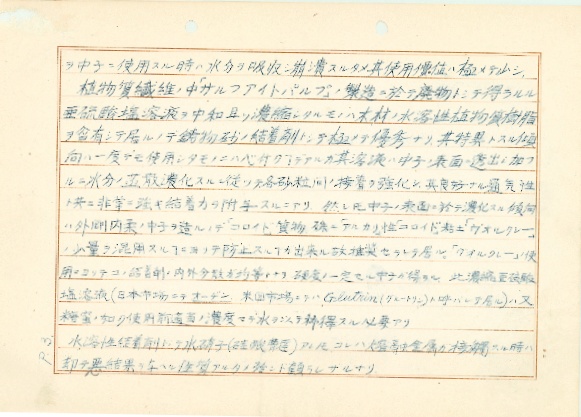 ヲ中子ニ使用スル時ハ水分ヲ吸収シ崩潰スルタメ其使用価値ハ極メテ少シ、
植物質繊維ノ中「サルフアイトパルプ」ノ製造ニ於テ廃物トシテ得ラルル
亜硫酸塩溶液ヲ中和且ツ濃縮シタルモノハ木材ノ水溶性植物質樹脂
ヲ含有シテ居ルノデ鋳物砂ノ結着剤トシテ極メテ優秀ナリ、其特異トスル傾
向ハ一度デモ使用シタモノニハ代 デアルカ其溶液ハ中子ノ表面ニ透出シ加フ
ルニ水分ノ蒸散濃化スルニ従ツテ各砂粒間ノ接着力強化シ其良好ナル通気性
ト共ニ非常ニ強キ結着力ヲ附与スルニアリ 然シ此中子ノ表面ニ於テ濃化スル傾向
ハ外剛内柔ノ中子ヲ造ルノデ「コロイド」質物 殊ニ「アルカリ」性「コロイド」粘土「ヴオルクレー」
ノ少量ヲ混用スルコトニヨツテ防止スルコトカ出来ル故推奨セラレテ居ル。「ヴオルクレー」使
用ニヨツテコノ結着剤ノ内外分散カ均等トナリ 硬度ノ一定セル中子カ得ラル 此濃縮亜硫酸
塩溶液(日本市場ニテ 米国市場ニテハ Glutrin(グルートリン)ト呼ハレテ居ル)ハ又
糖蜜ノ如ク使用前適当ノ濃度マデ水ヲ以テ稀釈スル必要アリ
水溶性結着剤トシテ水硝子(硅酸曹達)アルモコレハ熔融金属カ接觸スル時ハ
却テ悪結果ヲ 性質アルタメ殆ント顧ラレサルナリ